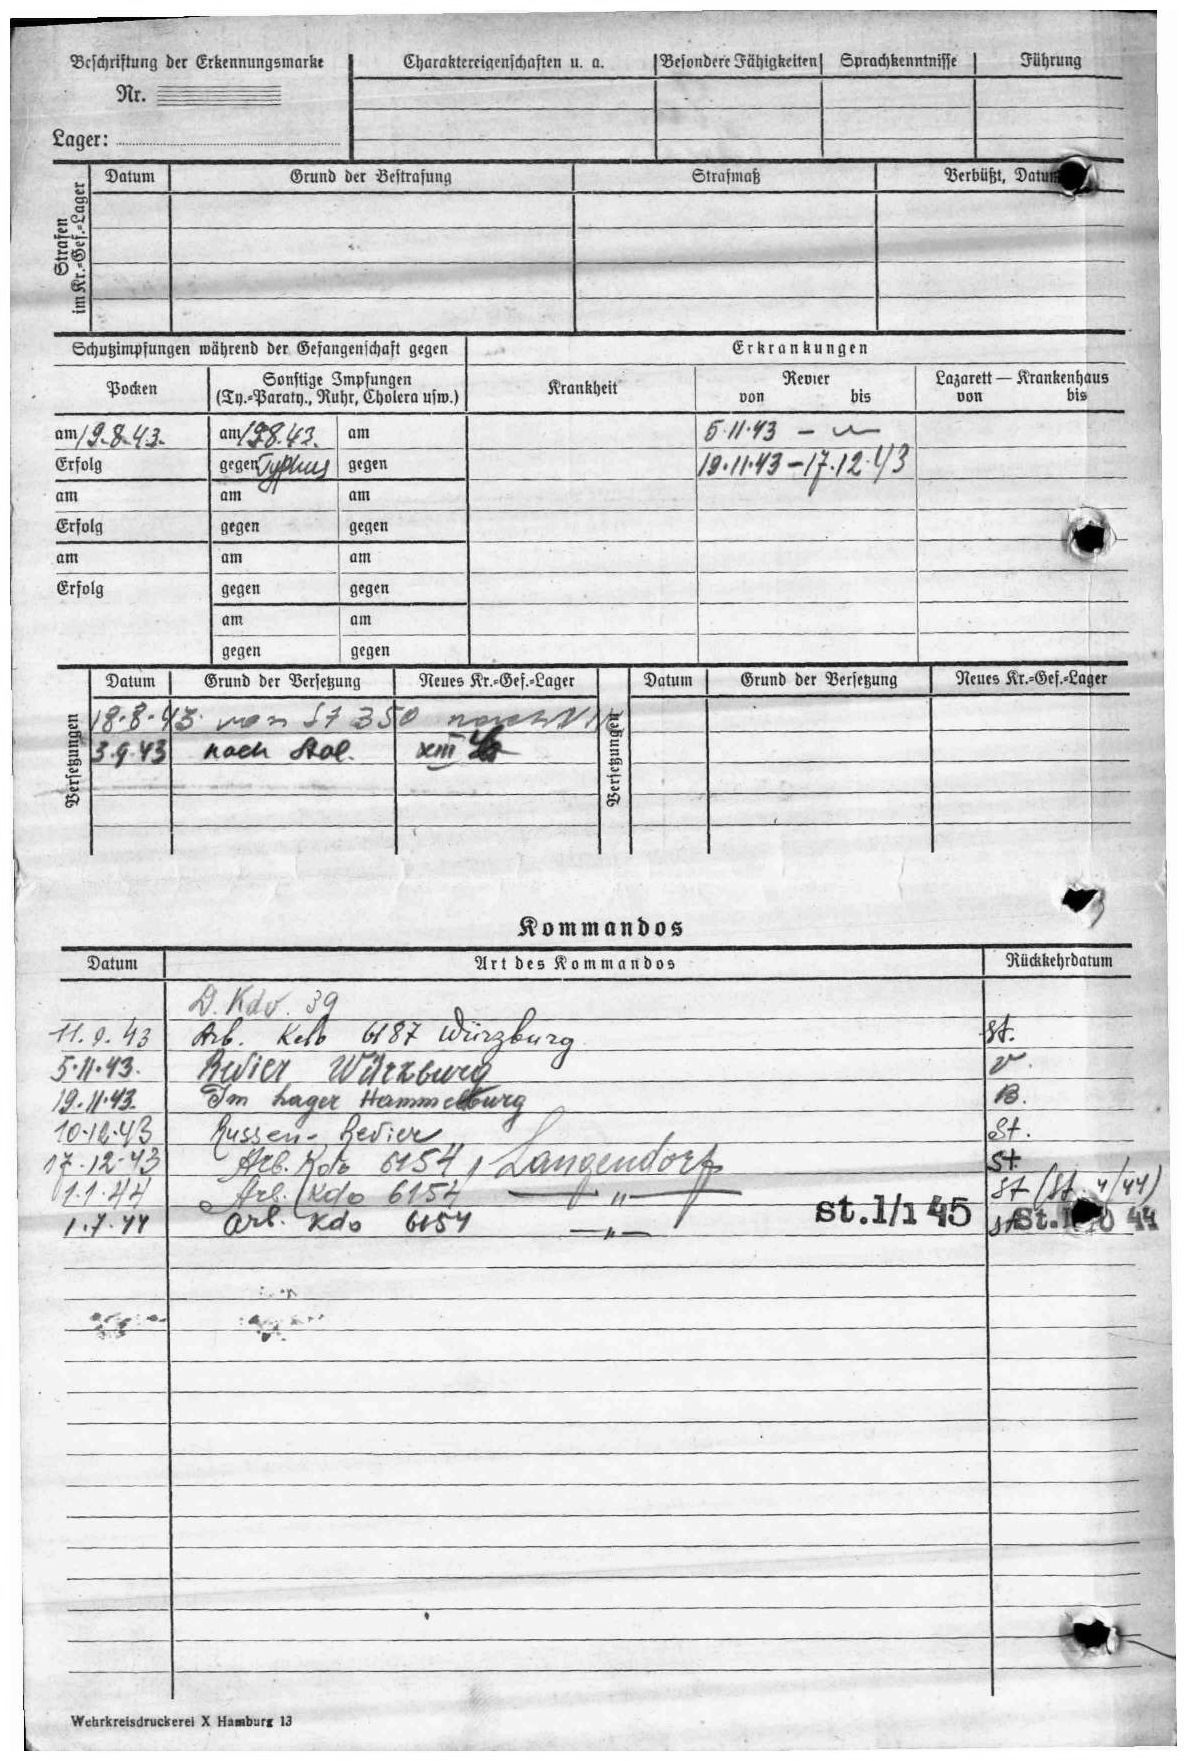 Beschriftung der Erkennungsmarke
Nr.
Lager:
Charaktereigenschaften u. a.
Besondere Fähigkeiten
Sprachkenntnisse
Führung
Strafen im Kr.=Gef.=Lager
Datum
Grund der Bestrafung
Strafmaß
Verbüßt, Datum
Schutzimpfungen während der Gefangenschaft gegen
Erkrankungen
Pocken
Sonstige Impfungen
(Ty.=Paraty., Ruhr, Cholera usw.)
Krankheit
Revier
von bis
Lazarett — Krankenhaus
von bis
am 19.8.43. am 19.8.43. am 5.11.43 –
Erfolg gegen Typhus gegen 19.11.43 – 17.12.43
am am am
Erfolg gegen gegen
am am am
Erfolg gegen gegen
am am
gegen gegen
Versetzungen
Datum Grund der Versetzung Neues Kr.=Gef.=Lager
18.8.43 von St 350 nach
3.9.43 nach Stal. XIII
Versetzungen
Datum Grund der Versetzung Neues Kr.=Gef.=Lager
Kommandos
Datum Art des Kommandos Rückkehrdatum
D. Kdo. 39
11.9.43 Arb. Kdo 6187 Würzburg St.
5.11.43. Revier Würzburg v.
19.11.43. Im Lager Hammelburg B.
10.12.43 Russen-Revier St.
17.12.43 Arb. Kdo 6154, Langendorf St.
1.1.44 Arb. Kdo 6154 — " — St (St. 4/44)
1.7.44 Arb. Kdo 6154 — " — St.1/1 45 St.
Wehrkreisdruckerei X Hamburg 13